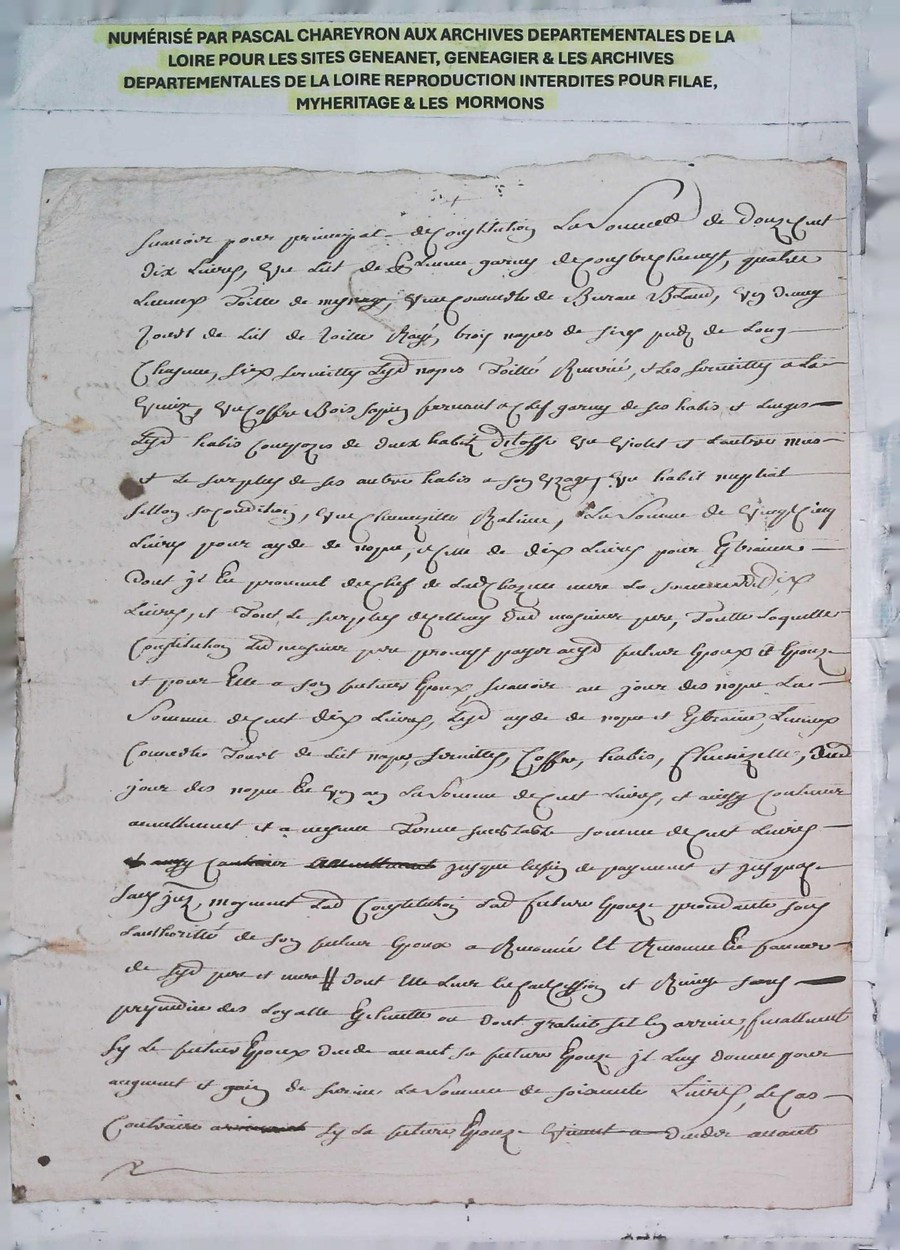 NUMÉRISÉ PAR PASCAL CHAREYRON AUX ARCHIVES DEPARTEMENTALES DE LA
LOIRE POUR LES SITES GENEANET, GENEAGIER & LES ARCHIVES
DEPARTEMENTALES DE LA LOIRE REPRODUCTION INTERDITES POUR FILAE,
MYHERITAGE & LES MORMONS
pour principal de Constitution La Somme de douze Cent
dix Livres, Un Lit de garny de quattre
Linceux Toille de mesnage, Une Couverte de Un
Tourt de Lit de Toille Rayé, trois napes de six pieds de Long
Chacune, six serviettes Lesd napes Toille et Les serviettes a La
Venize, Un Coffre Bois sapin fermant a Clef garny de ses habis et Linges
Lesd habis Composez de deux habits d'étoffe Un Violet et L'autre
et Le surplus de ses autres habis a son Usage, Un habit nuptial
sellon sa Condition, Une Chemizette Ratine, La Somme de Vingt Cinq
Livres pour ayde de nopce, et Celle de dix Livres pour Estraine
dont jl En provient du Chef de Lad mere La somme de dix
Livres, et Tout Le surplus de Celluy dud pere, Toutte Laquelle
Constitution Led pere promet payer ausd futurs Epoux et Epouze
et pour Elle a son futur Epoux, au jour des nopce La
Somme de Cent dix Livres, Lesd ayde de nopce et Estraine, Linceux
Couverte Tourt de Lit napes, serviettes, Coffre, habis, Chemizette, dud
jour des nopce En Un an La Somme de Cent Livres, et ainsy Continuer
annuellement et a mesme Terme semblable somme de Cent Livres
jusque a fin de payement et jusques
moyenant Lad Constitution Lad future Epouze procedante sous
L'authoritté de son futur Epoux a Renoncé Et Renonce En faveur
de sesd pere et mere # dont Elle Leur En passe
prejudice des Loyalle Echeutte ou dont gratuit sil Luy arrive, finallement
Sy Le futur Epoux decede avant sa future Epouze jl Luy donne pour
augment et gain de survie La Somme de soixante Livres, au Cas
Contraire Sy La future Epouze Vient a deceder avant